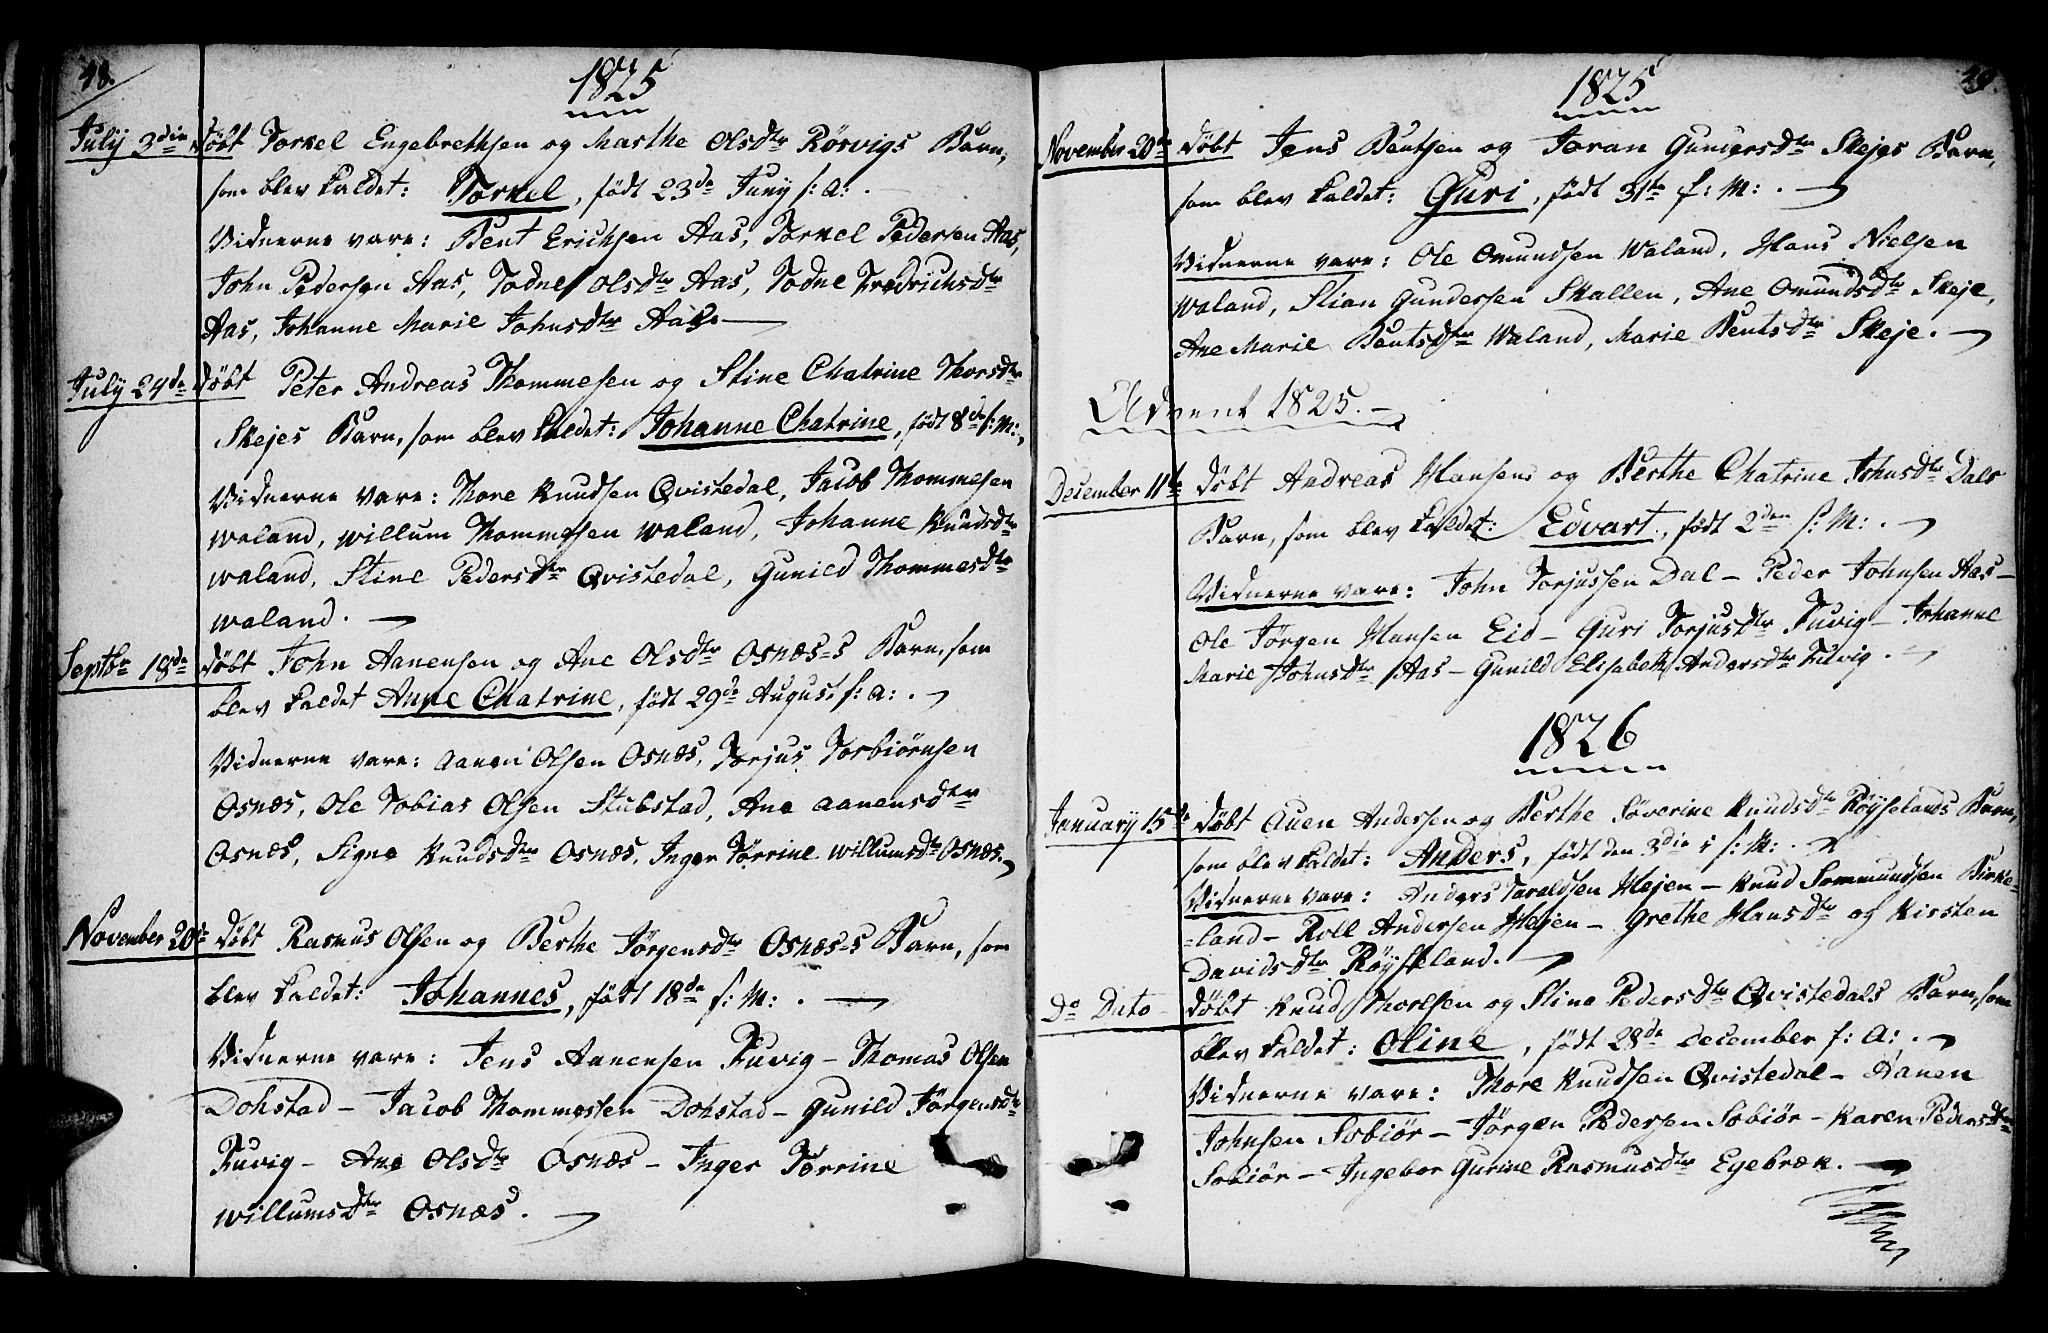 48.
1825
July 3die Døbt Torkel Engebrethsen og Marthe Olsdtr Rörvigs Barn,
som blev kaldet: Torkel, født 23de Juny s: a: .
Vidnerne vare: Bent Erichsen Aas, Torkel Pedersen Aas,
John Pedersen Aas, Todne Olsdtr Aas, Todne Fredrichsdtr
Aas, Johanne Marie Johnsdtr Aas.
July 24de Døbt Peter Andreas Thommesen og Stine Chatrine Thorsdtr
Skejes Barn, som blev kaldet: Johanne Chatrine, født 8de s: M:,
Vidnerne vare: Thore Knudsen Qvistedal, Jacob Thommesen
Waland, Willum Thommesen Waland, Johanne Knudsdtr
Waland, Stine Pedersdtr Qvistedal, Gunild Thommesdtr
Waland.
Septbr 18de Døbt John Aanensen og Ane Olsdtr Osnæs-s Barn, som
blev kaldet Anne Chatrine, født 29de August s: a: .
Vidnerne vare: Aanen Olsen Osnæs, Torjus Torbiörnsen
Osnæs, Ole Tobias Olsen Stubstad, Ane Aanensdtr
Osnæs, Signe Knudsdtr Osnæs, Inger Törrine Willumsdtr Osnæs.
November 20de Døbt Rasmus Olsen og Berthe Jörgensdtr Osnæs-s Barn, som
blev kaldet: Johannes, født 18de s: M: .
Vidnerne vare: Jens Aanensen Fuvig - Thomas Olsen
Dohstad - Jacob Thommessen Dohstad - Gunild Jörgensdtr
Fuvig - Ane Olsdtr Osnæs - Inger Törrine
Willumsdtr Osnæs.
49.
1825
November 20de Døbt Jens Bentsen og Joran Gundersdtr Skejes Barn,
som blev kaldet: Guri, født 31te f: M: .
Vidnerne vare: Ole Omundsen Waland, Hans Nielsen
Waland, Stian Gundersen Skallen, Ane Omundsdtr Skeje,
Ane Marie Bentsdtr Waland, Marie Bentsdtr Skeje.
Advent 1825.
December 11te Døbt Andreas Hansens og Berthe Chatrine Johnsdtr Dals
Barn, som blev kaldet: Edvart, født 2den s: M: .
Vidnerne vare: John Torjussen Dal - Peder Johnsen Aas -
Ole Jörgen Hansen Eid - Guri Torjusdtr Fuvig - Johanne
Marie Johnsdtr Aas - Gunild Elisabeth Andersdtr Fuvig.
1826
January 15de Døbt Auen Andersen og Berthe Söverine Knudsdtr Röyselands Barn,
som blev kaldet: Anders, født den 3die i s: M: .
Vidnerne vare: Anders Taraldsen Højen - Knud Sommundsen Birke-
-land - Roll Andersen Højen - Grethe Hansdtr og Kissten
Davidsdtr Röyseland.
Do Dato - Døbt Knud Thorsen og Stine Pedersdtr Qvistedals Barn, som
blev kaldet: Oline, født 28de December f: A: .
Vidnerne vare: Thore Knudsen Qvistedal - Aanen
Johnsen Sobiör - Jörgen Pedersen Sobiör - Karen Pedersdtr
Sobiör - Ingebor Gurine Rasmusdtr Egebræk.